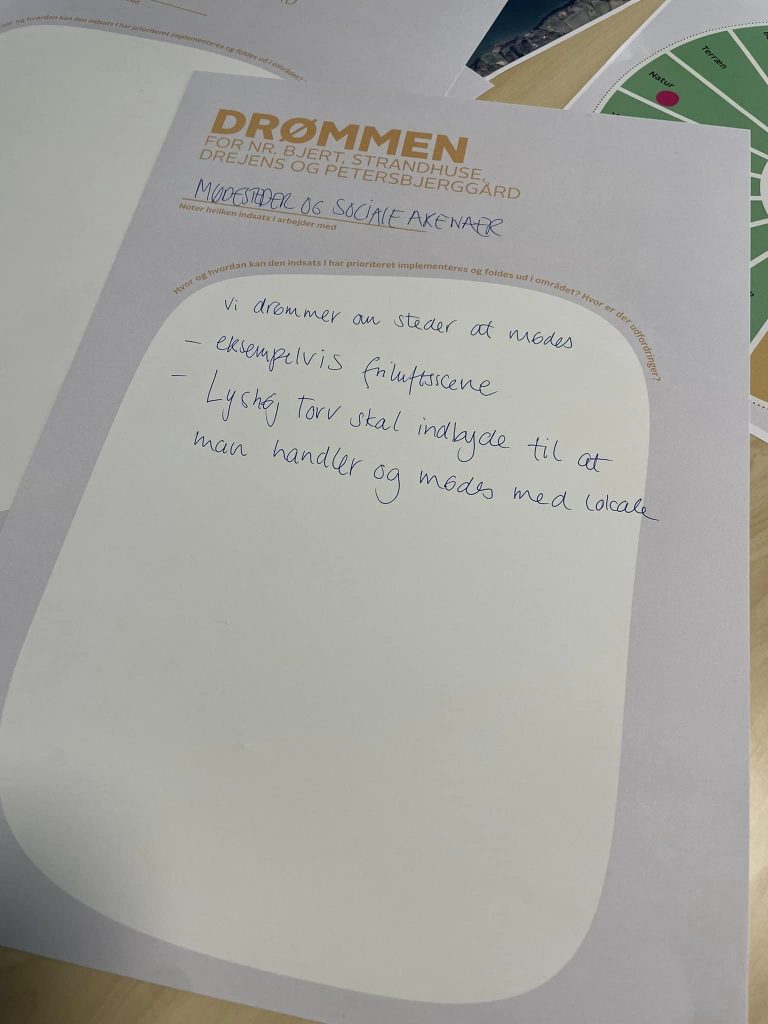 med
vor og hvordan kan den indsats I har prioriteret implementeres og foldes ud i området?
Terræn
Natur
DRØMMEN
FOR NR. BJERT, STRANDHUSE,
DREJENS OG PETERSBJERGGÅRD
MØDESTEDER OG SOCIALE ARENAER
Noter hvilken indsats I arbejder med
Hvor og hvordan kan den indsats I har prioriteret implementeres og foldes ud i området? Hvor er der udfordringer?
Vi drømmer om steder at mødes
- eksempelvis friluftsscene
- Lyshøj Torv skal indbyde til at
man handler og mødes med lokale